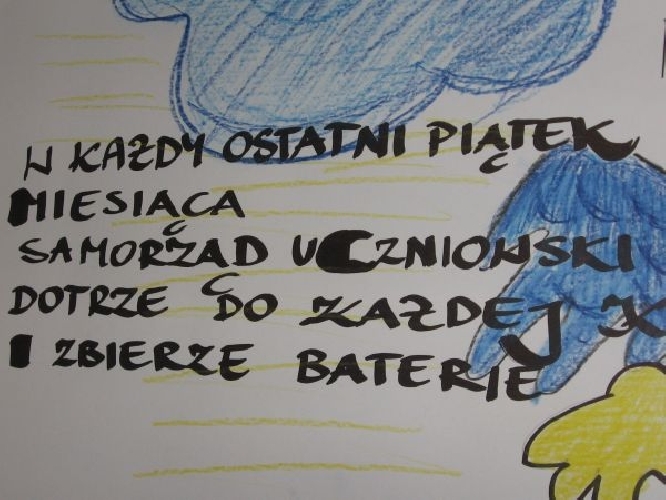 W KAŻDY OSTATNI PIĄTEK
MIESIĄCA
SAMORZĄD UCZNIOWSKI
DOTRZE DO KAŻDEJ K
I ZBIERZE BATERIE